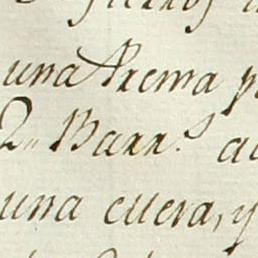 una Arema p
2,, Barr.s a
una cuera, y